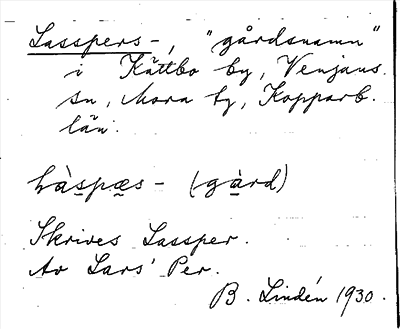 Lasspers-, "gårdsnamn"
i Kättbo by, Venjans
sn, Mora tg, Kopparb.
län.
làs̠pæ̠s - (gà̠rd)
Skrives Lassper.
Av Lars' Per.
B. Lindén 1930.